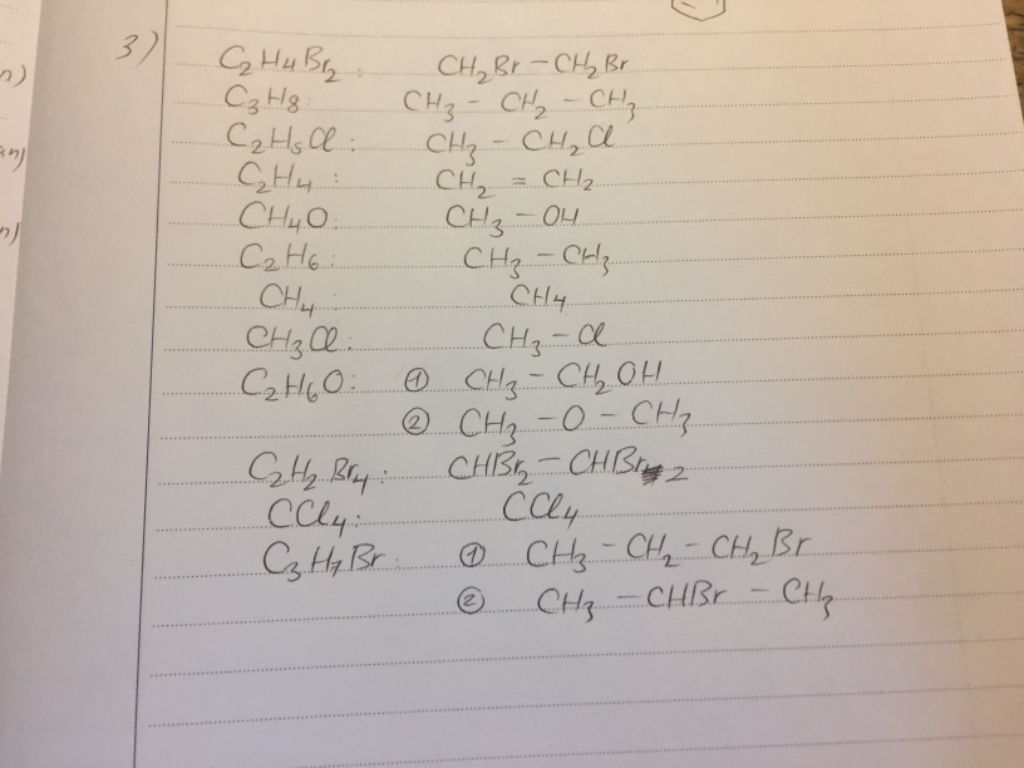 3)
C₂H₄Br₂: CH₂Br – CH₂Br
C₃H₈: CH₃ – CH₂ – CH₃
C₂H₅Cl: CH₃ – CH₂Cl
C₂H₄: CH₂ = CH₂
CH₄O: CH₃ – OH
C₂H₆: CH₃ – CH₃
CH₄: CH₄
CH₃Cl: CH₃ – Cl
C₂H₆O: ① CH₃ – CH₂OH
② CH₃ – O – CH₃
C₂H₂Br₄: CHBr₂ – CHBr₂
CCl₄: CCl₄
C₃H₇Br: ① CH₃ – CH₂ – CH₂Br
② CH₃ – CHBr – CH₃